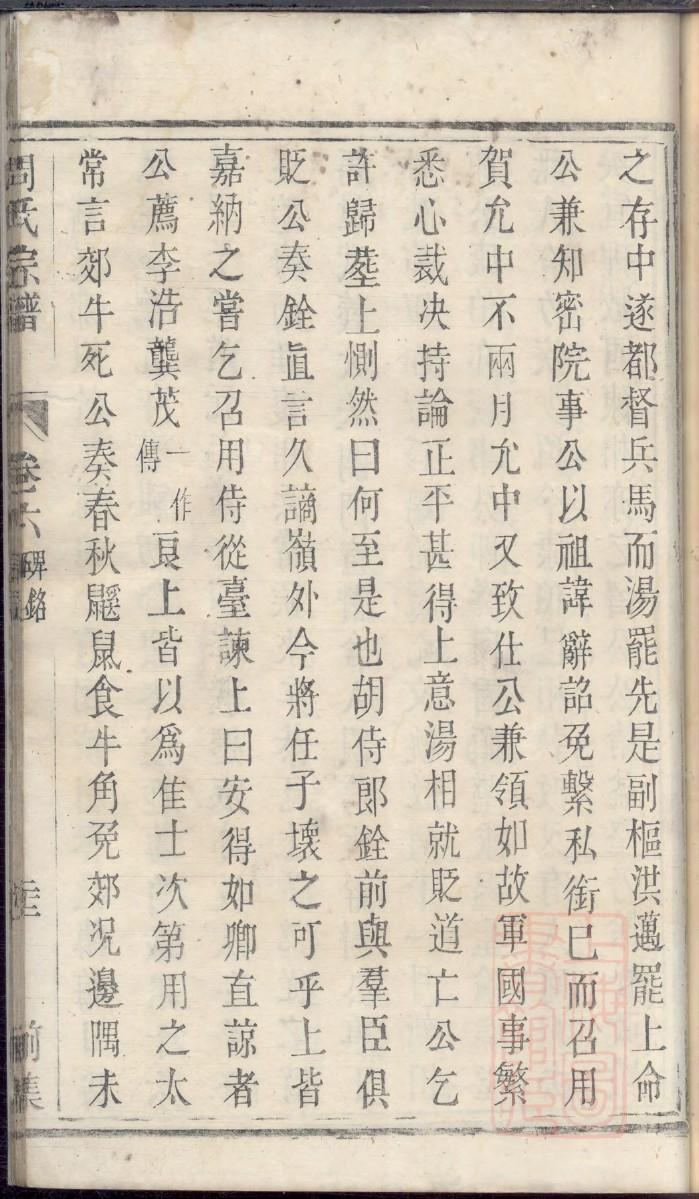 之存中遂都督兵馬而湯罷先是副樞洪邁罷上命
公兼知密院事公以祖諱辭詔免繫私銜巳而召用
賀允中不兩月允中又致仕公兼領如故軍國事繁
悉心裁决持論正平甚得上意湯相就貶道亡公乞
許歸塟上惻然曰何至是也胡侍郎銓前與羣臣俱
貶公奏銓直言久謫嶺外今將任子壞之可乎上皆
嘉納之嘗乞召用侍從臺諫上曰安得如卿直諒者
公薦李浩龔茂一作傳良上皆以爲佳士次第用之太
常言郊牛死公奏春秋鼷鼠食牛角免郊况邊隅未
周氏宗譜 卷六 碑銘 前集